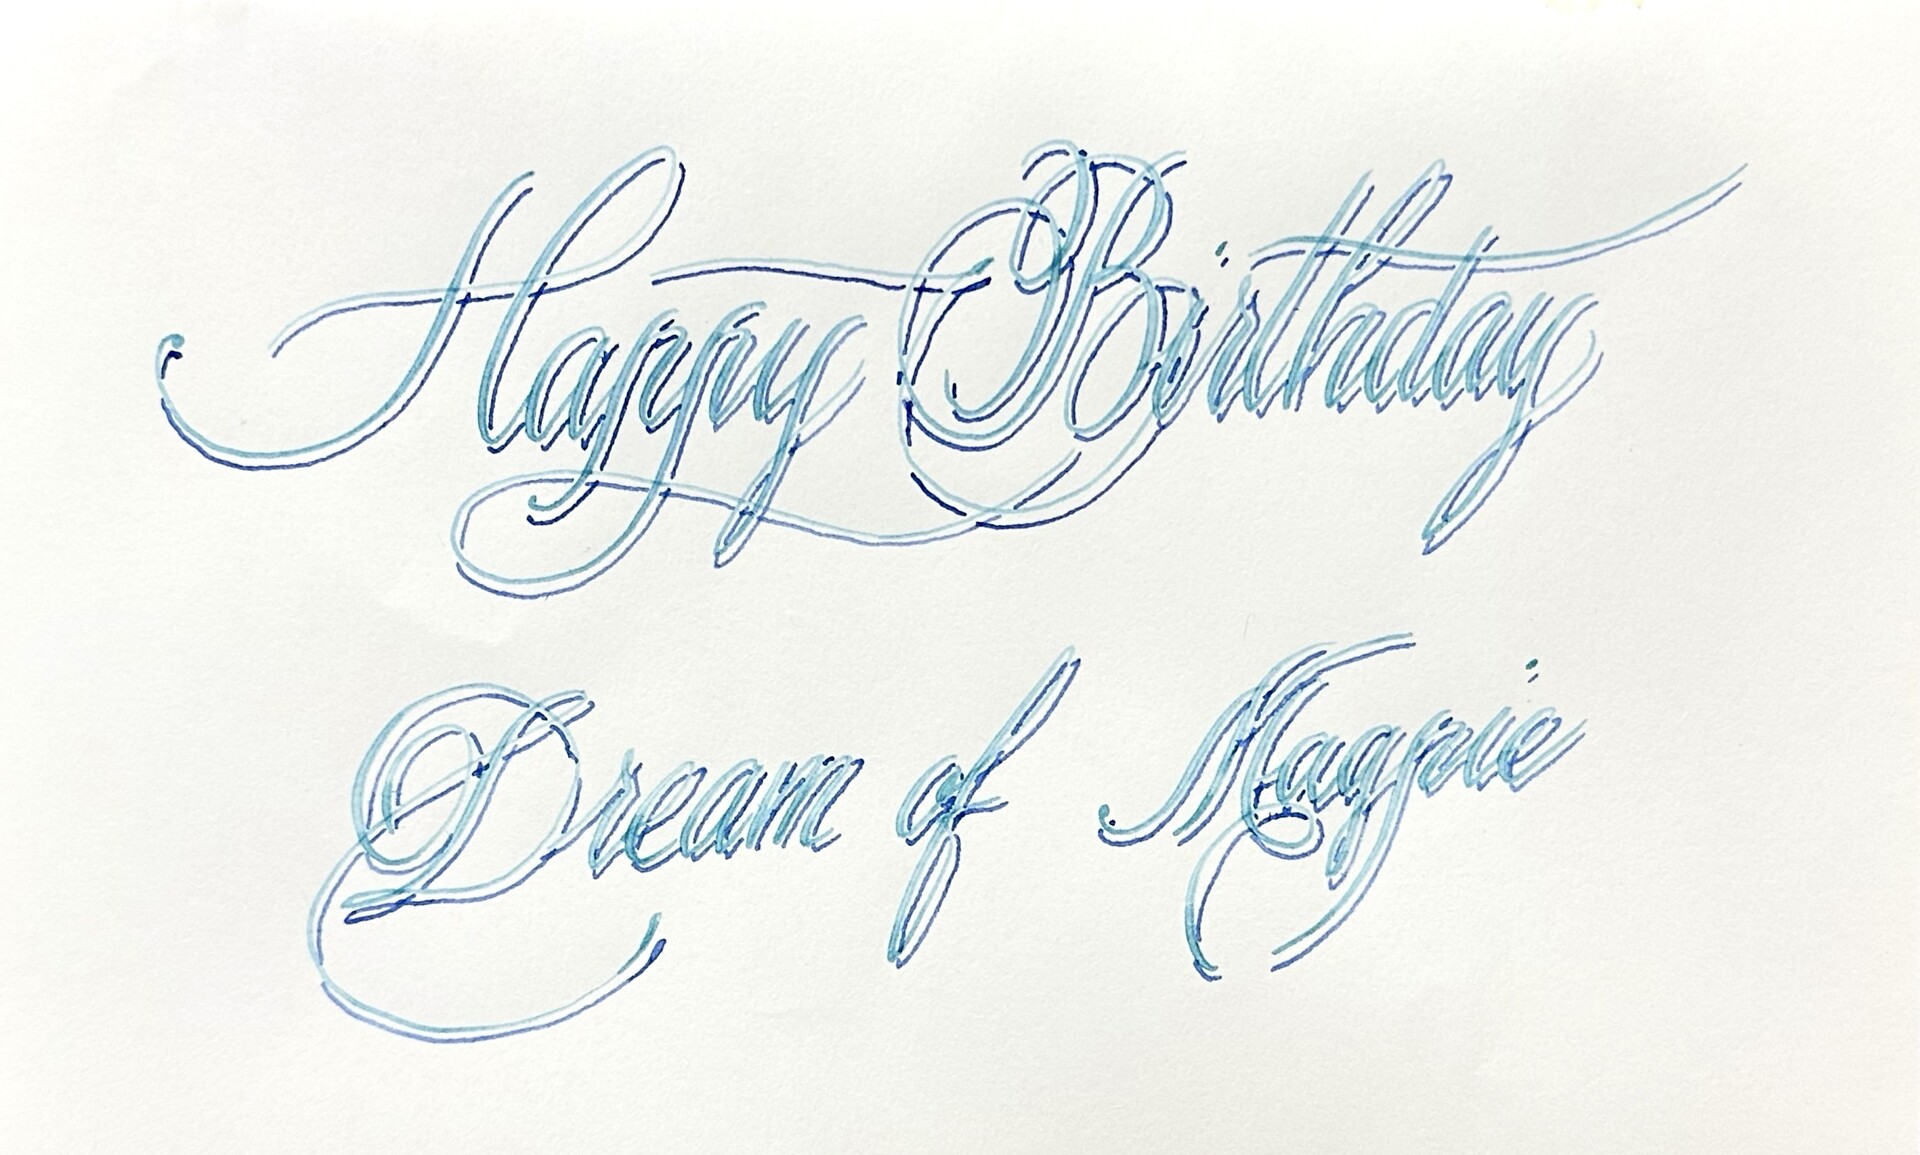 Happy Birthday
Dream of Magpie